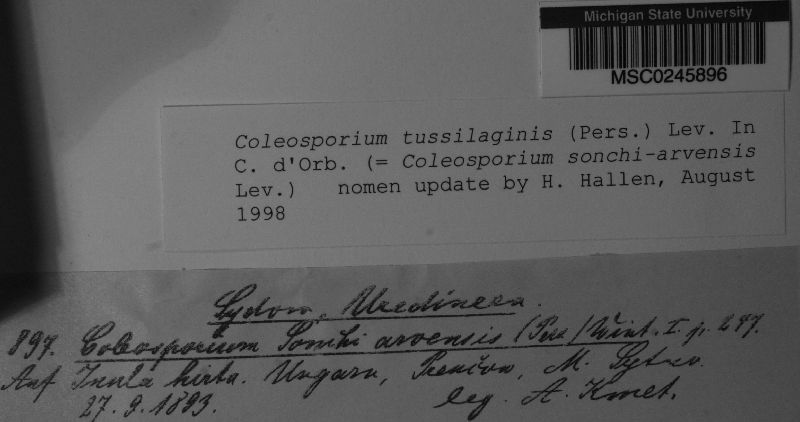 Michigan State University
MSC0245896
Coleosporium tussilaginis (Pers.) Lev. In
C. d'Orb. (= Coleosporium sonchi-arvensis
Lev.) nomen update by H. Hallen, August
1998
Sydow, Uredineen.
897. Coleosporium Sonchi arvensis (Pers) Wint. I. p. 247.
Auf Inula hirta. Ungarn, Prenčow, M. 
27. 9. 1893. leg. A. Kmet.